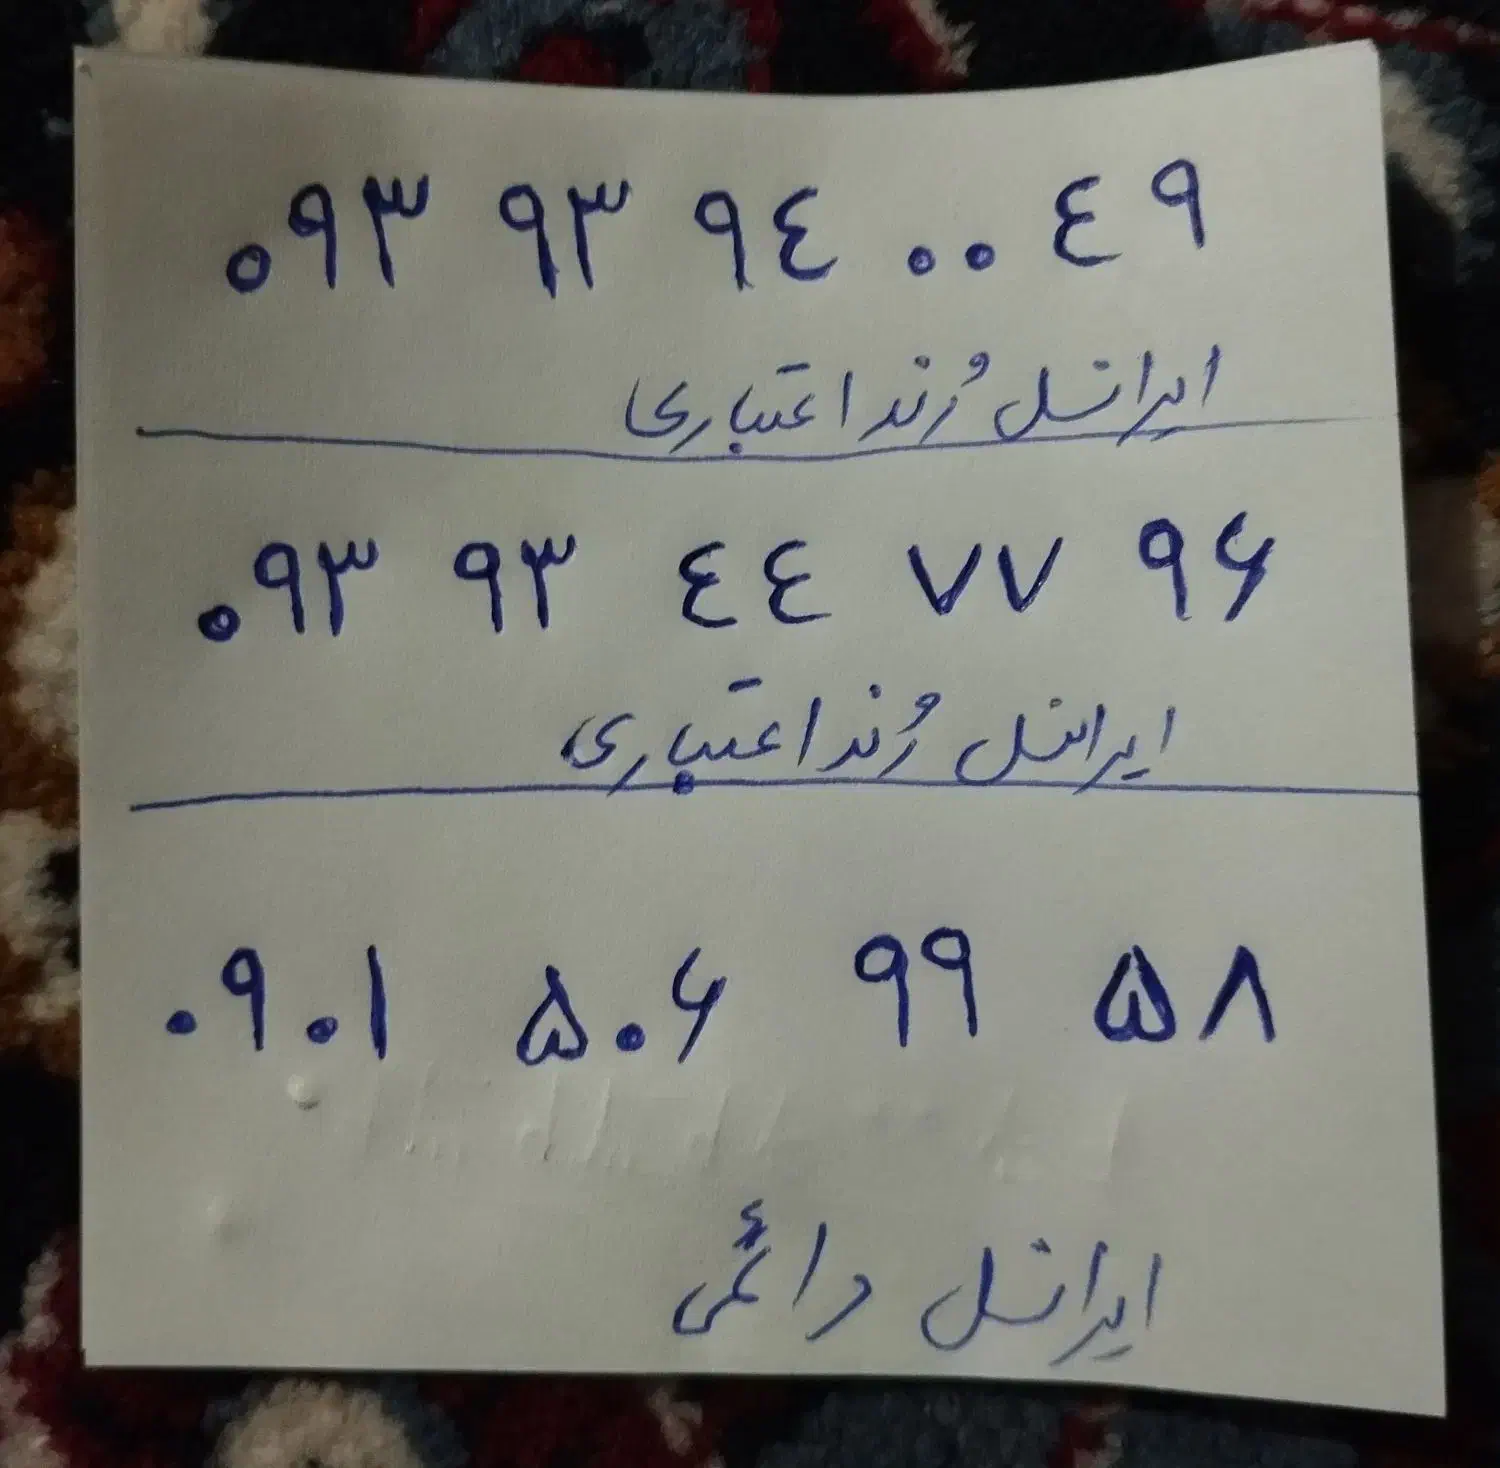 ۰۹۳ ۹۳ ۹۴ ۰۰ ۴۹
ایرانسل رُند اعتباری
۰۹۳ ۹۳ ۴۴ ۷۷ ۹۶
ایرانسل رُند اعتباری
۰۹۰۱ ۵۰۶ ۹۹ ۵۸
ایرانسل دائمی